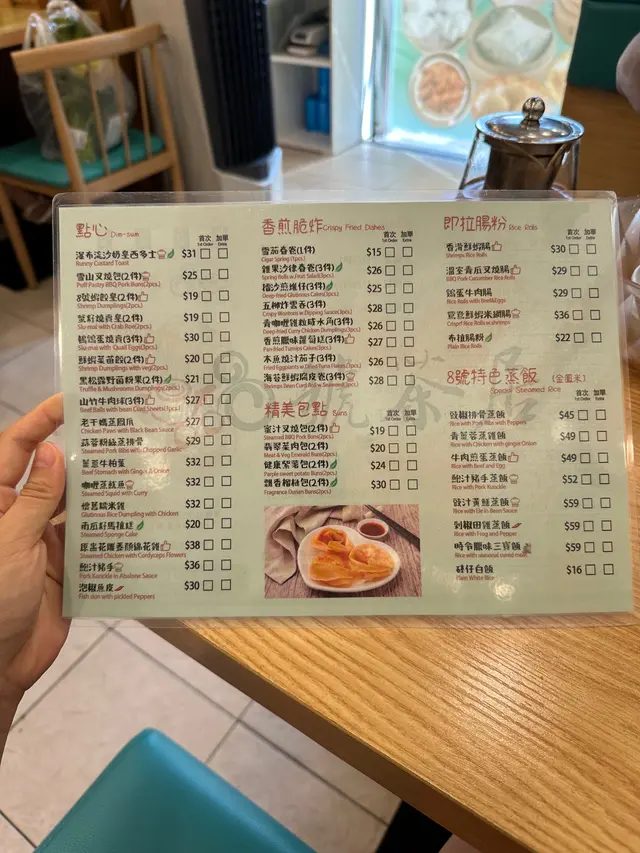 點心 Dim-sum
首次 加單
1st Order Extra
瀑布流沙奶皇西多士 $31
Runny Custard Toast
雪山叉燒包(2件) $25
Puff Pastry BBQ Pork Buns(2pcs.)
8號蝦餃皇(2件) $19
Shrimp Dumplings(2pcs.)
$19
Siu-mai with Crab Roe(2pcs.)
鵪鶉蛋燒賣(3件) $30
Siu-mai with Quail Eggs(3pcs.)
鮮蝦菜苗餃(2件) $20
Shrimp Dumplings with veg(2pcs.)
黑松露野菌粿(2件) $21
Truffle & Mushrooms Dumplings(2pcs.)
山竹牛肉球(3件) $27
Beef Balls with bean Curd Sheets(3pcs.)
老干媽蒸鳳爪 $27
Chicken Paws with Black Bean Sauce
蒜蓉粉絲蒸排骨 $29
Steamed Pork Ribs with Chopped Garlic
薑蔥牛柏葉 $32
Beef Stomach with Ginger & Onion
咖喱蒸魷魚 $32
Steamed Squid with Curry
懷舊糯米雞 $32
Glutinous Rice Dumpling with Chicken
南瓜籽馬拉糕 $20
Steamed Sponge Cake
$38
Steamed Chicken with Cordyceps Flowers
鮑汁豬手 $36
Pork Knuckle in Abalone Sauce
泡椒魚皮 $30
Fish skin with pickled Peppers
香煎脆炸 Crispy Fried Dishes
首次 加單
1st Order Extra
雪茄春卷(1件) $15
Cigar Spring (1pcs.)
雜果沙律春卷(3件) $26
Spring Rolls w Fruit Salad(3pcs.)
$25
Deep-fried Glutinous Cakes(3pcs.)
五柳炸雲吞(3件) $28
Crispy Wontons w Dipping Sauce(3pcs.)
青咖喱雞粒咸水角(3件) $26
Deep-fried Curry Chicken Dumplings(3pcs.)
香煎臘味蘿蔔糕(3件) $27
Pan-fried Turnips Cakes(3pcs.)
木魚燒汁茄子(3件) $26
Fried Eggplants w Dried Tuna Flakes(3pcs.)
海苔鮮蝦腐皮卷(3件) $28
Shrimps Bean Curd Roll w Seaweed(3pcs.)
精美包點 Buns
首次 加單
1st Order Extra
蜜汁叉燒包(2件) $19
Steamed BBQ Pork Buns(2pcs.)
翡翠菜肉包(2件) $20
Meat & Veg Emerald Buns(2pcs.)
健康紫薯包(2件) $24
Purple sweet potato Buns(2pcs.)
飄香榴槤包(2件) $30
Fragrance Durian Buns(2pcs.)
即拉腸粉 Rice Rolls
首次 加單
1st Order Extra
香滑鮮蝦腸 $30
Shrimps Rice Rolls
溫室青瓜叉燒腸 $29
BBQ Pork Cucumber Rice Rolls
鵪蛋牛肉腸 $29
Rice Rolls with Beef&Eggs
鴛鴦鮮蝦米網腸 $36
Crispy Rice Rolls w shrimps
布拉腸粉 $22
Plain Rice Rolls
8號特色蒸飯 (金鳳米)
Special Steamed Rice
首次 加單
1st Order Extra
豉椒排骨蒸飯 $45
Rice with Pork Ribs with Peppers
青蔥蓉蒸雞飯 $49
Rice with Chicken with ginger Onion
牛肉煎蛋蒸飯 $49
Rice with Beef and Egg
鮑汁豬手蒸飯 $52
Rice with Pork Knuckle
豉汁黃鱔蒸飯 $59
Rice with Eel in Bean Sauce
剁椒田雞蒸飯 $59
Rice with Frog and Pepper
時令臘味三寶飯 $59
Rice with seasonal cured meat
砵仔白飯 $16
Plain White Rice
8號茶居